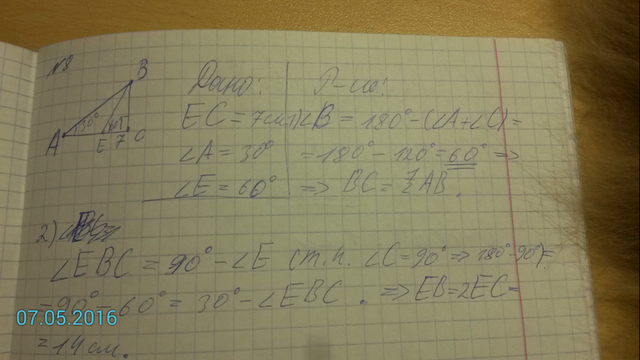 №8
B
30°
A
E
7
C
Дано:
EC = 7см
∠A = 30°
∠E = 60°
Р-ие:
1) ∠B = 180° - (∠A + ∠C) =
= 180° - 120° = 60° =>
=> BC = ½ AB.
2)
∠EBC = 90° - ∠E (т.к. ∠C = 90° => 180° - 90°) =
= 90° - 60° = 30° - ∠EBC. => EB = 2EC =
= 14 см.
07.05.2016